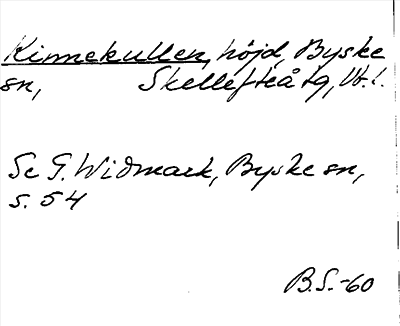 Kinnekullen, höjd, Byske
sn, Skellefteå tg, Vb.l.
Se G. Widmark, Byske sn,
s. 54
B.S.-60